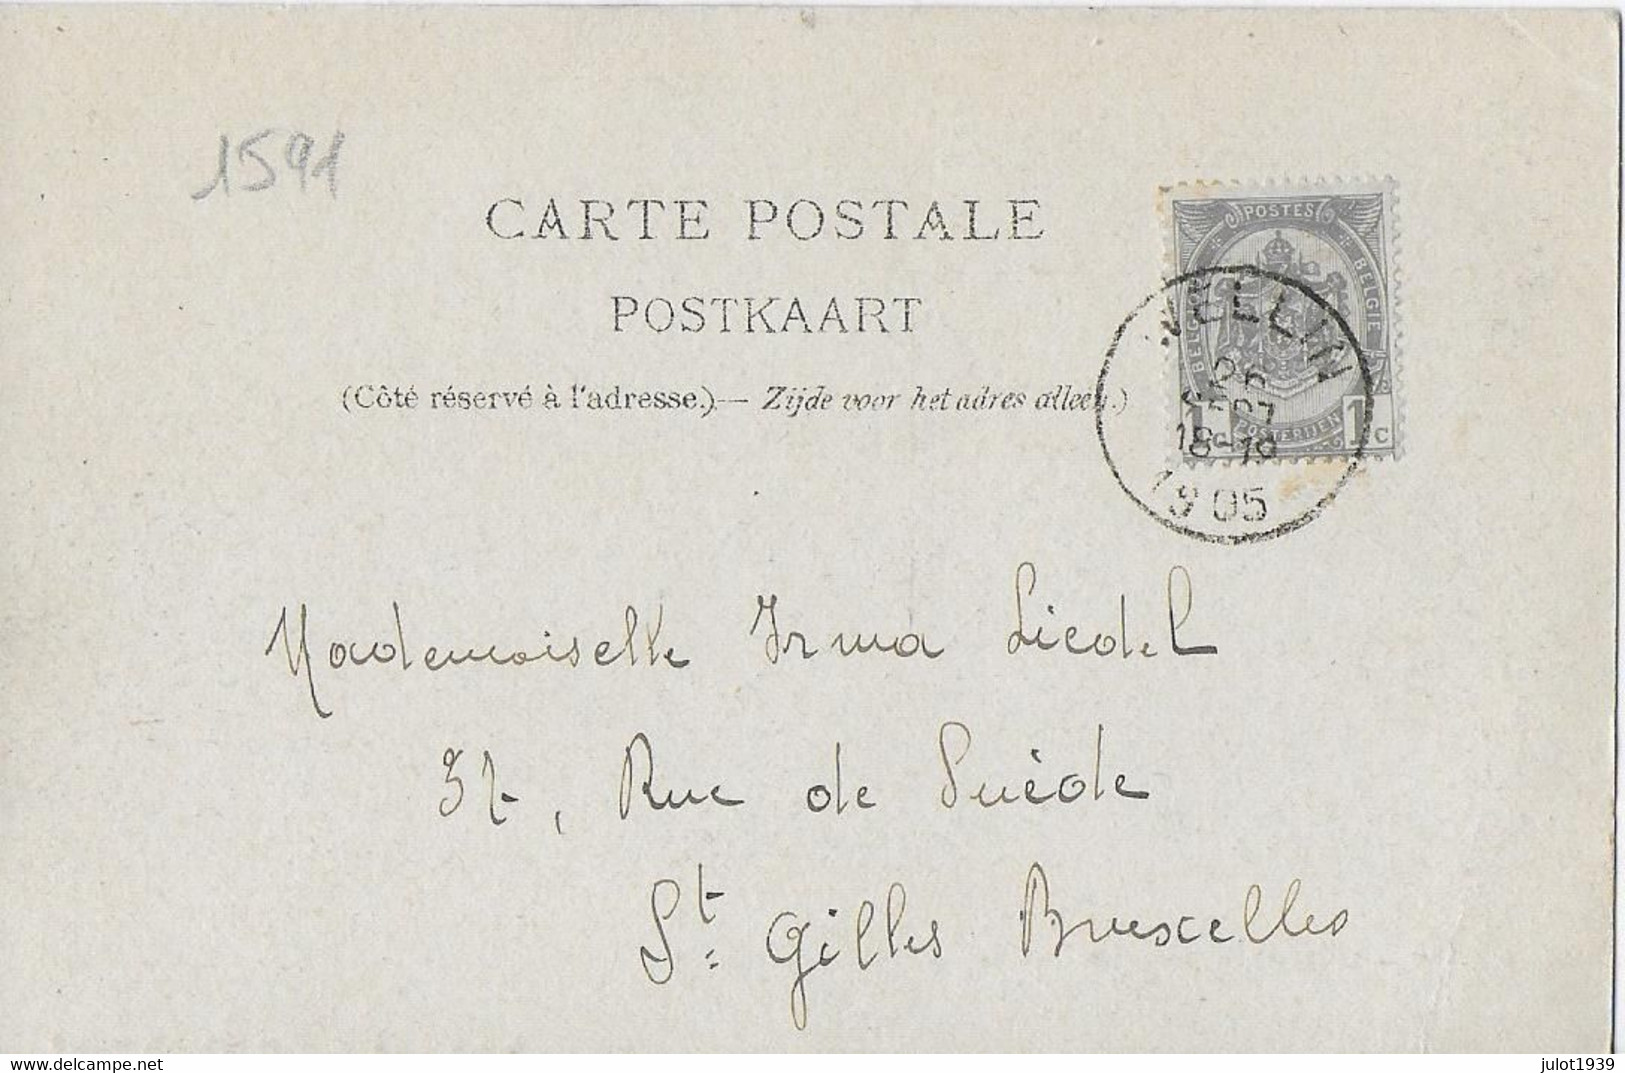 1591
CARTE POSTALE
POSTKAART
(Côté réservé à l'adresse.) — Zijde voor het adres alleen.)
POSTES
BELGIQUE BELGIE
1 C POSTERIJEN 1 C
WELLIN
18-19
1905
Mademoiselle Irma Liedel
37, Rue de Suède
St Gilles Bruxelles
DELCAMPE.NET
julot1939